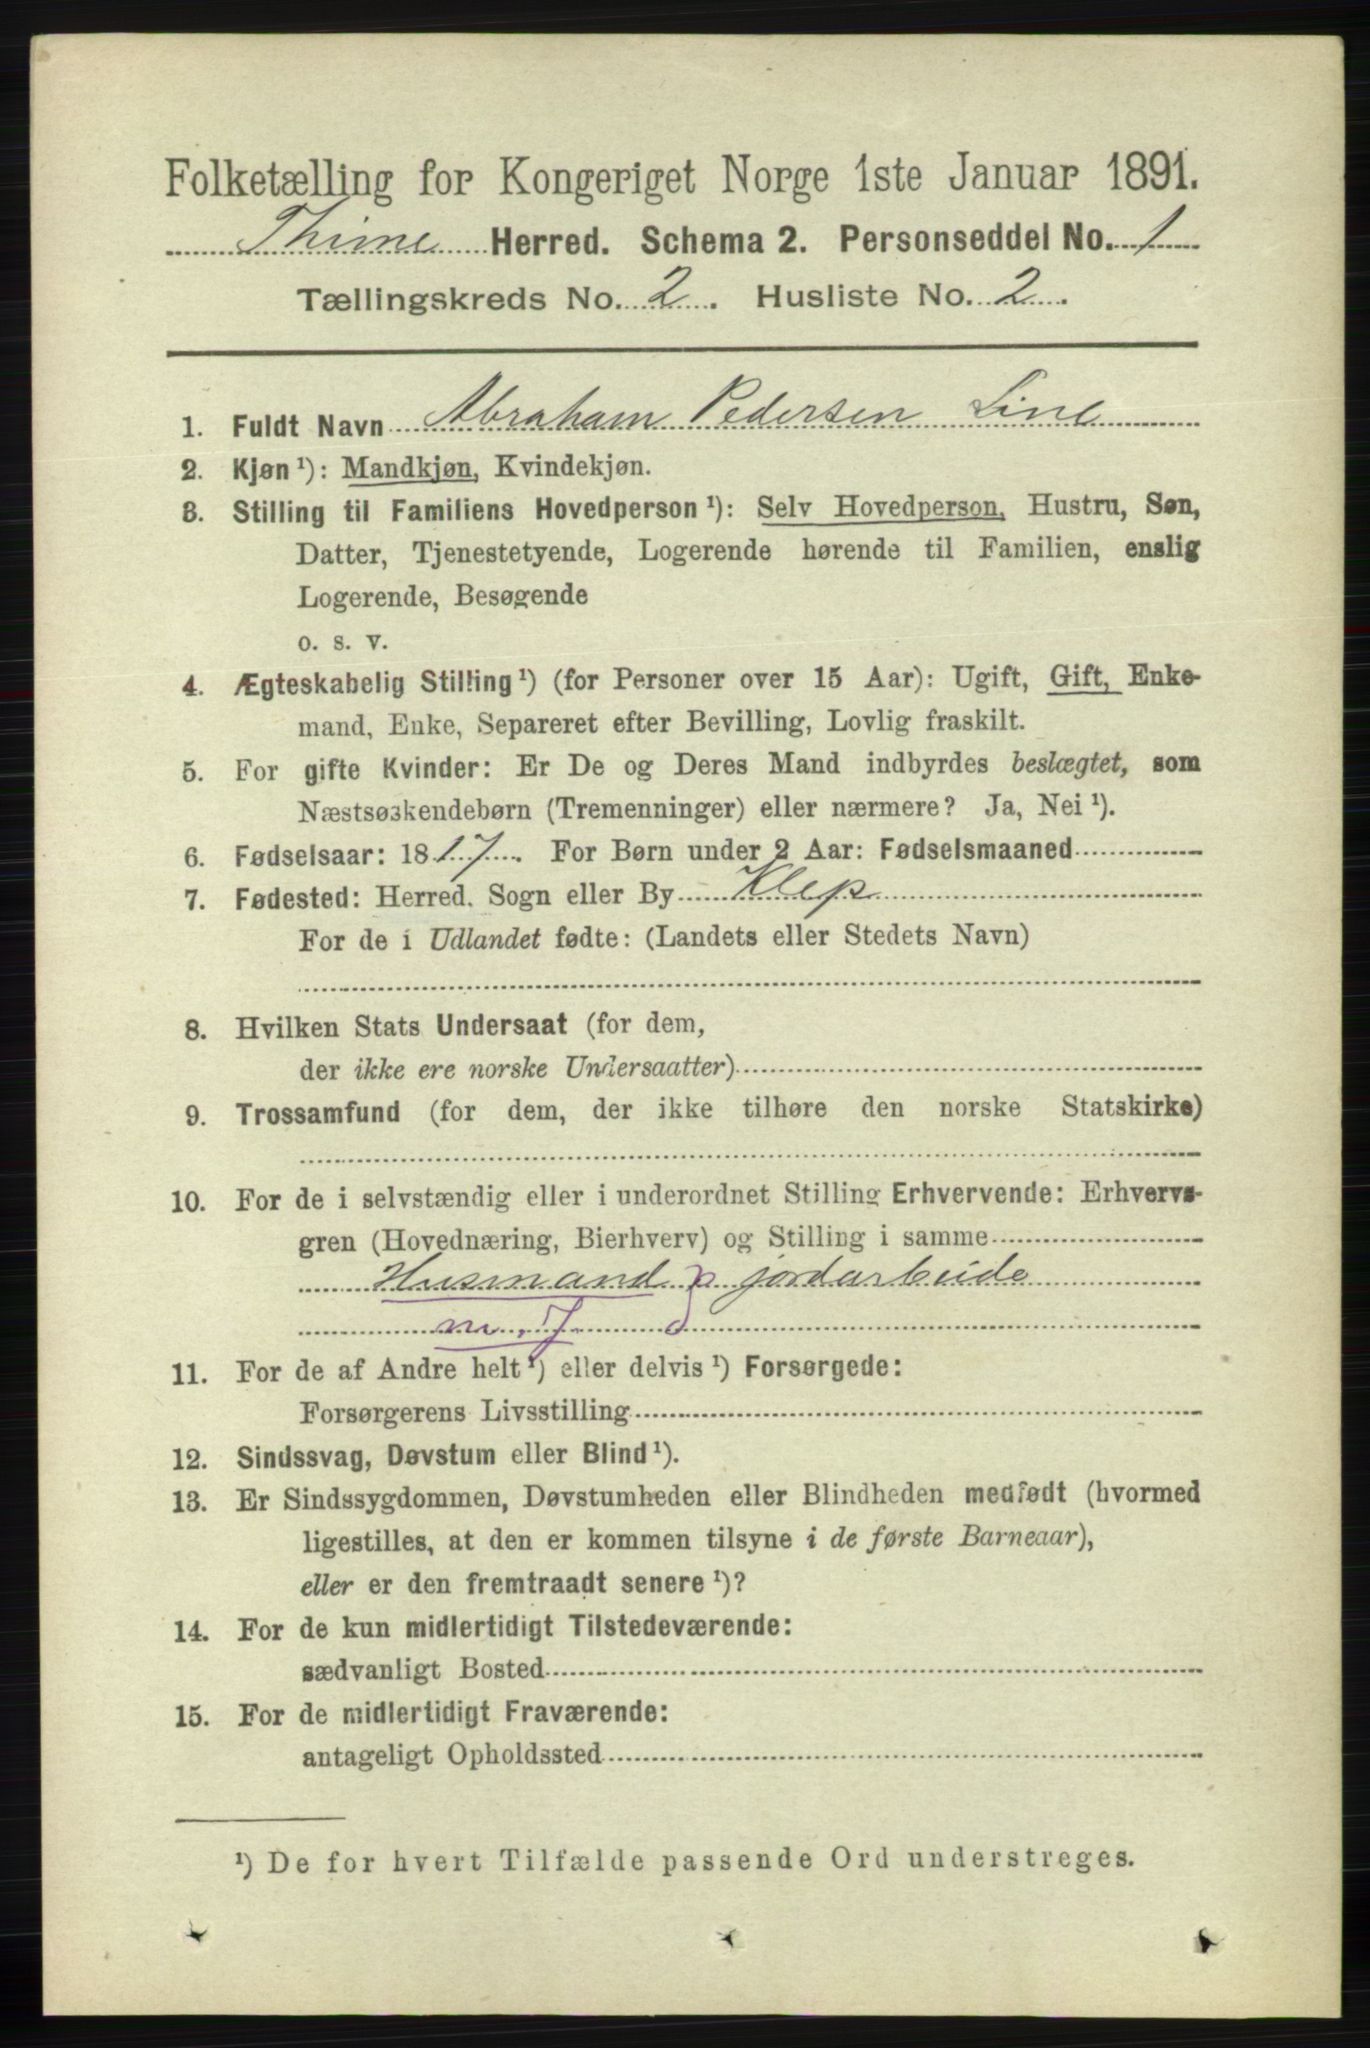 Folketælling for Kongeriget Norge 1ste Januar 1891.
Thime Herred. Schema 2. Personseddel No. 1
Tællingskreds No. 2. Husliste No. 2.
1. Fuldt Navn Abraham Pedersen Line
2. Kjøn ¹): Mandkjøn, Kvindekjøn.
3. Stilling til Familiens Hovedperson ¹): Selv Hovedperson, Hustru, Søn,
Datter, Tjenestetyende, Logerende hørende til Familien, enslig
Logerende, Besøgende
o. s. v.
4. Ægteskabelig Stilling ¹) (for Personer over 15 Aar): Ugift, Gift, Enke-
mand, Enke, Separeret efter Bevilling, Lovlig fraskilt.
5. For gifte Kvinder: Er De og Deres Mand indbyrdes beslægtet, som
Næstsøskendebørn (Tremenninger) eller nærmere? Ja, Nei ¹).
6. Fødselsaar: 1817. For Børn under 2 Aar: Fødselsmaaned
7. Fødested: Herred. Sogn eller By Klep
For de i Udlandet fødte: (Landets eller Stedets Navn)
8. Hvilken Stats Undersaat (for dem,
der ikke ere norske Undersaatter)
9. Trossamfund (for dem, der ikke tilhøre den norske Statskirke)
10. For de i selvstændig eller i underordnet Stilling Erhvervende: Erhvervs-
gren (Hovednæring, Bierhverv) og Stilling i samme
Husmand jordarbeide
m. J
11. For de af Andre helt ¹) eller delvis ¹) Forsørgede:
Forsørgerens Livsstilling
12. Sindssvag, Døvstum eller Blind ¹).
13. Er Sindssygdommen, Døvstumheden eller Blindheden medfødt (hvormed
ligestilles, at den er kommen tilsyne i de første Barneaar),
eller er den fremtraadt senere ¹)?
14. For de kun midlertidigt Tilstedeværende:
sædvanligt Bosted
15. For de midlertidigt Fraværende:
antageligt Opholdssted
¹) De for hvert Tilfælde passende Ord understreges.